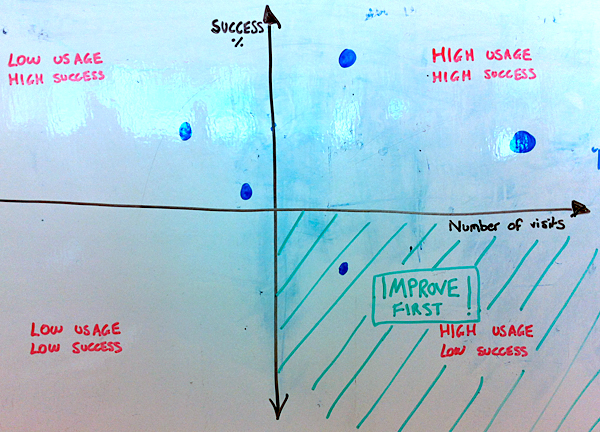 SUCCESS
%
LOW USAGE
HIGH SUCCESS
HIGH USAGE
HIGH SUCCESS
Number of visits
IMPROVE
FIRST !
LOW USAGE
LOW SUCCESS
HIGH USAGE
LOW SUCCESS